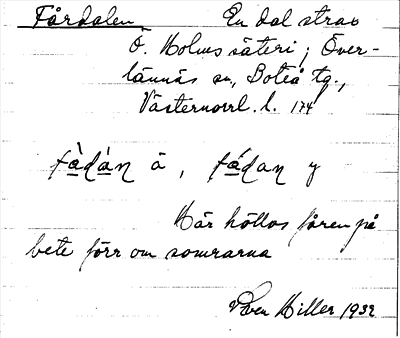 Fårdalen En dal strax
Ö. Holms säteri; Över-
lännäs sn, Boteå tg.,
Västernorrl. l. 174
fàdàn ä, fádan y
Här höllos fåren på
bete förr om somrarna
Sven Hiller 1932